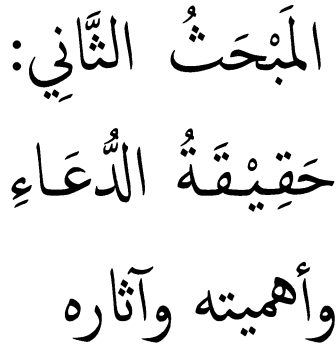 المَبْحَثُ الثَّانِي:
حَقِيْقَةُ الدُّعَاءِ
وأهميته وآثاره